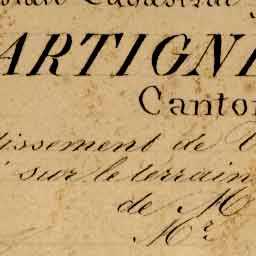 Cadastral
ARTIGN
Canton
issement de V
sur le terrain
de M
Mr